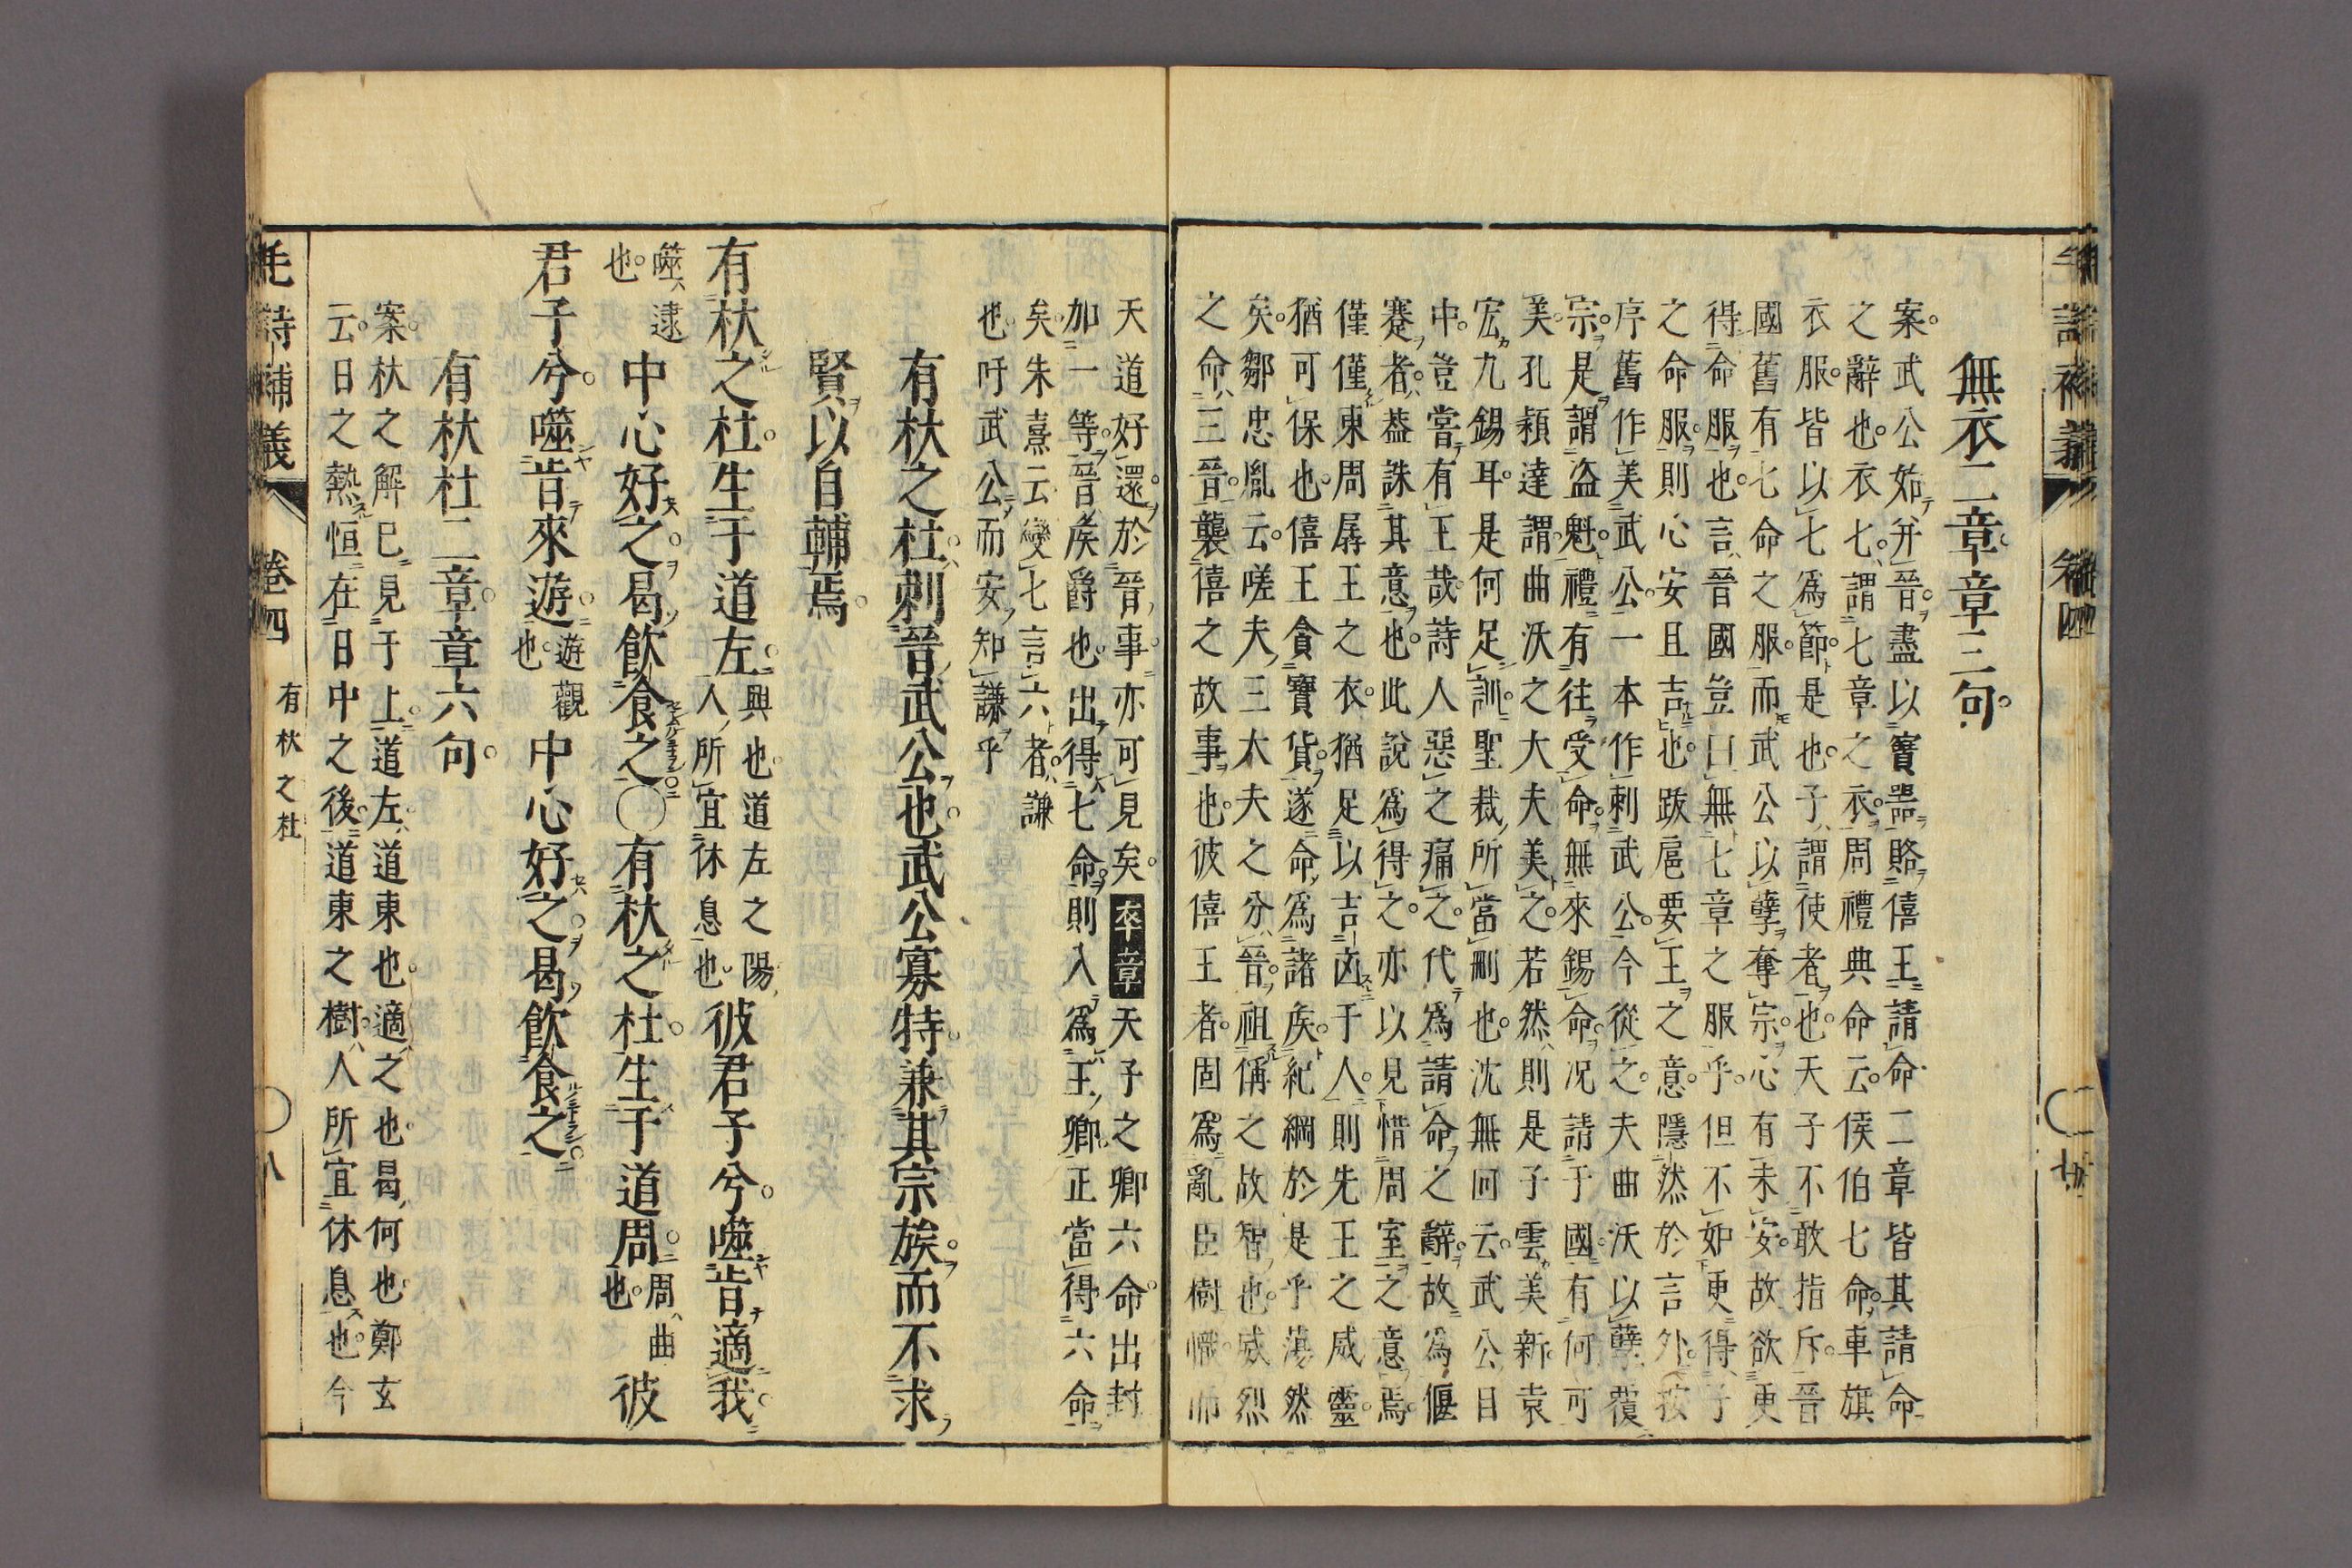 無衣二章章三句
案武公始并晉盡以寶器賂僖王請命二章皆其請命
之辭也衣七謂七章之衣周禮典命云侯伯七命車旗
衣服皆以七為節是也子謂使者也天子不敢指斥晉
國舊有七命之服而武公以孽奪宗心有未安故欲更
得命服也言晉國豈曰無七章之服乎但不如更得子
之命服則心安且吉也跋扈要王之意隱然於言外按
序舊作美武公一本作刺武公今從之夫曲沃以孽覆
宗是謂盜魁禮有往受命無來錫命況請于國有何可
美孔穎達謂曲沃之大夫美之若然則是子雲美新袁
宏九錫耳是何足訓聖裁所當刪也沈無回云武公目
中豈嘗有王哉詩人惡之痛之代為請命之辭故為偃
蹇者葢誅其意也此說為得之亦以見惜周室之意焉
僅僅東周孱王之衣猶足以吉凶于人則先王之威靈
猶可保也僖王貪寶貨遂命為諸矦紀綱於是乎蕩然
矣鄒忠胤云嗟夫三大夫之分晉祖偁之故智也威烈
之命三晉襲僖之故事也彼僖王者固為亂臣樹幟而
天道好還於晉事亦可見矣卒章天子之卿六命出封
加一等晉矦爵也出得七命則入為王卿正當得六命
矣朱熹云變七言六者謙
也吁武公而安知謙乎
有杕之杜刺晉武公也武公寡特兼其宗族而不求
賢以自輔焉
有杕之杜生于道左興也道左之陽人所宜休息也彼君子兮噬肯適我
噬逮也中心好之曷飲食之○有杕之杜生于道周周曲也彼
君子兮噬肯來遊遊觀也中心好之曷飲食之
有杕杜二章章六句
案杕之解已見于上道左道東也適之也曷何也鄭玄
云日之熱恒在日中之後道東之樹人所宜休息也今
毛詩補義 卷四 有杕之杜 ○八